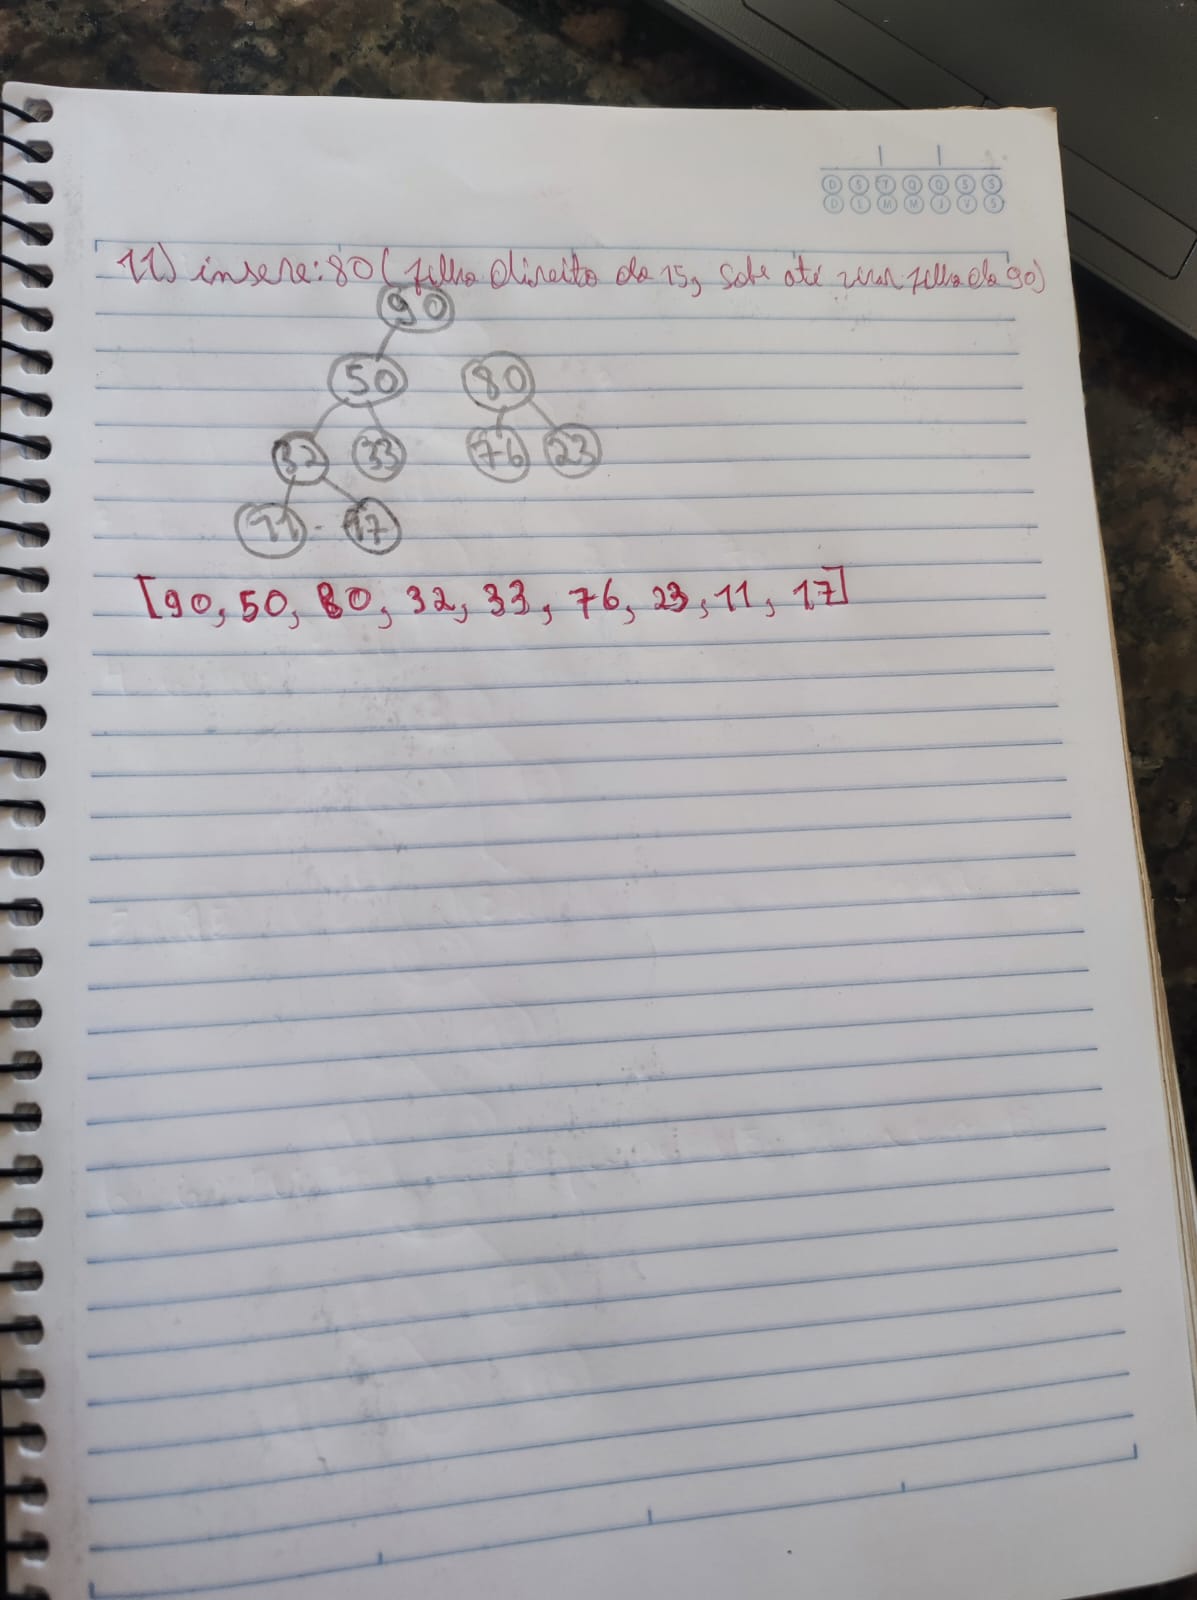 D S T Q Q S S
D L M M J V S
11) insere: 80 ( filho direito do 15, sobe até virar filho do 90)
90
50 80
32 33 76 23
11 - 17
[90, 50, 80, 32, 33, 76, 23, 11, 17]